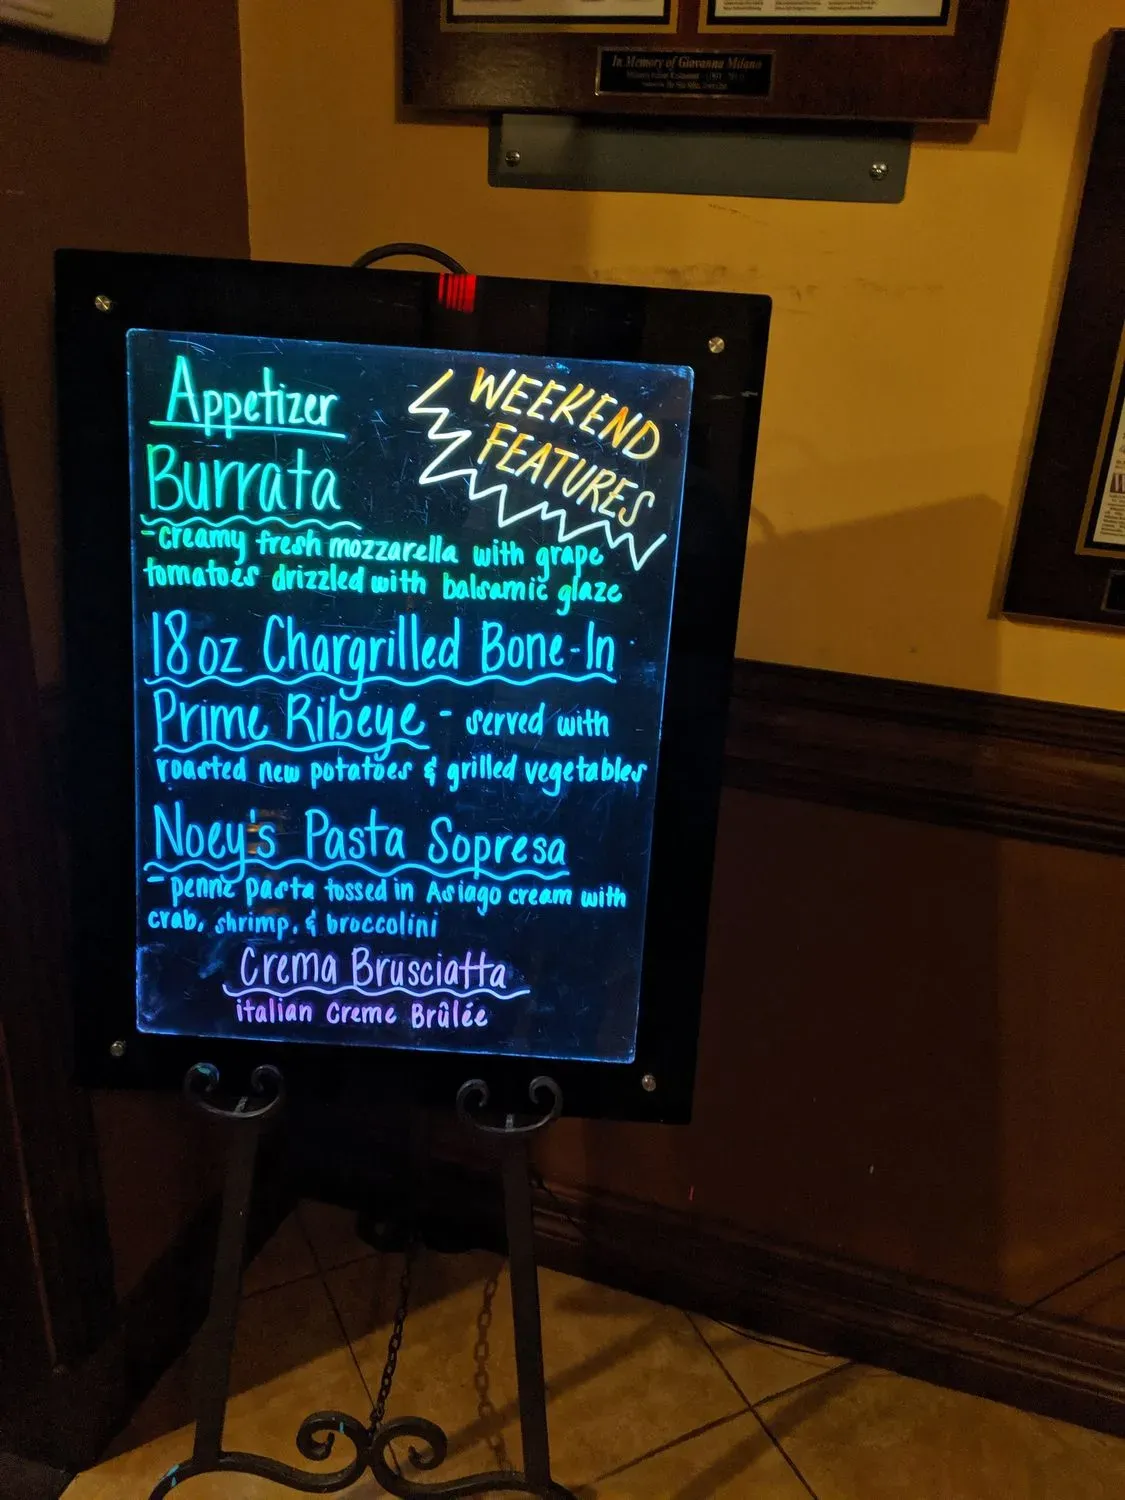 In Memory of Giovanna Milano
Appetizer
WEEKEND
FEATURES
Burrata
-creamy fresh mozzarella with grape
tomatoes drizzled with balsamic glaze
18oz Chargrilled Bone-In
Prime Ribeye - served with
roasted new potatoes & grilled vegetables
Noey's Pasta Sopresa
- penne pasta tossed in Asiago cream with
crab, shrimp, & broccolini
Crema Brusciatta
italian Creme Brûlée